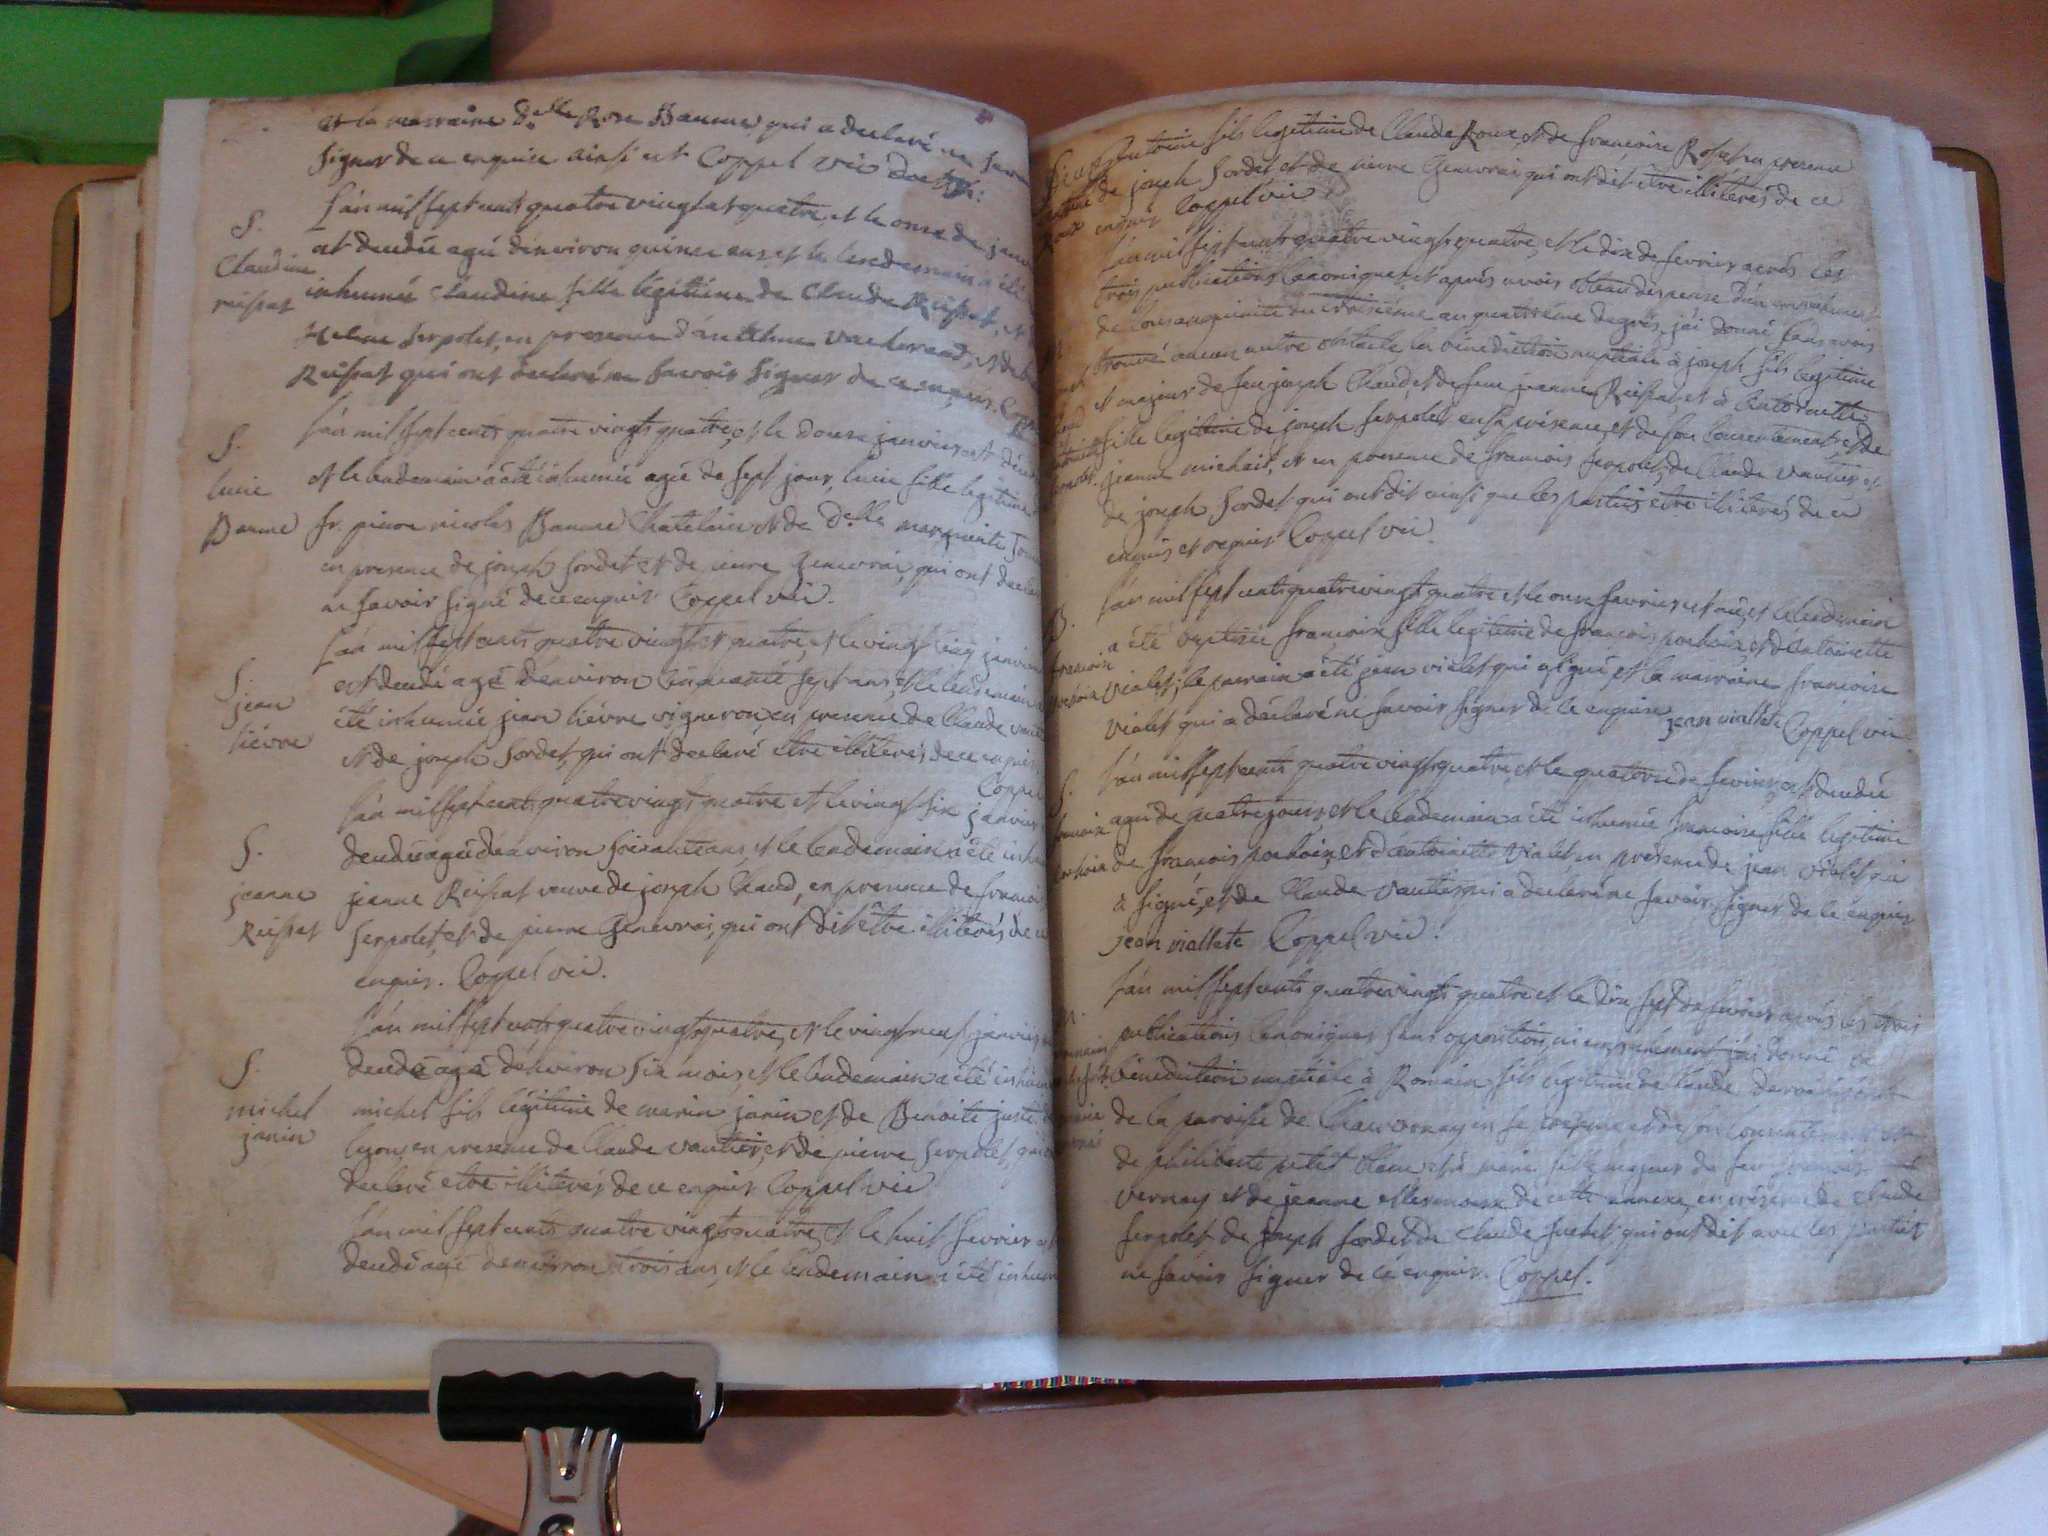 et la marraine D.elle Rose Baume, qui a declaré ne savoir
signer de ce enquise ainsi est Coppel vic
S. Claudine reissat
l'an mil sept cents quatre vingts et quatre, et le onse de janvier
est decedée agée d'environ quinse ans et le lendemain a été
inhumée Claudine fille légitime de Claude Reissat, et
Helene Serpolet, en presence d'anthelme
Reissat qui ont declaré ne savoir signer de ce enquis. Coppel
S. lucie Baume
l'an mil sept cents quatre vingts quatre, et le douse janvier est
et le lendemain a été inhumée agée de sept jour, lucie fille legitime
Sr. pierre nicolas Baume Chatelain et de D.elle marguerite
en presence de joseph Sordet et de pierre Genevrai, qui ont declaré
ne savoir signé de ce enquis Coppel vic.
S. jean lièvre
l'an mil sept cents quatre vingt et quatre, et le vingt cinq janvier
est decedé agé d'environ cinquante sept ans, et le lendemain a
été inhumée jean lièvre vigneron, en presence de Claude
et de joseph Sordet, qui ont declaré etre illiterés de ce enquis.
Coppel
S. jeanne Reissat
l'an mil sept cents quatre vingt quatre et le vingt six janvier
decedée agée d'environ soixante ans et le lendemain a été
jeanne Reissat veuve de joseph Claud, en presence de francois
Serpolet, et de pierre Genevrai, qui ont dit être illiterés de ce
enquis. Coppel vic.
S. michel janin
l'an mil sept cents quatre vingts quatre, et le vingt neuf janvier
decedé agé d'environ six mois, et le lendemain a été
michel fils légitime de marin janin et de Benoite juste
lyon, en presence de Claude vautier, et de pierre Serpolet, qui
declaré etre illiterés de ce enquis Coppel vic
l'an mil sept cents quatre vingts quatre, et le huit fevrier est
decedé agé d'environ trois ans, et le lendemain a été
antoine fils legitime de Claude Roux, et de francoise en presence
de joseph Sordet et de pierre Genevrai qui ont dit être illiterés de ce
enquis Coppel vic
l'an mil sept cents quatre vingts quatre, et le dix de fevrier aprés les
trois publications canoniques et aprés avoir obtenu dispense d'un empechement
de consanguinité du troisième au quatrième degrés, j'ai donné sans avoir
trouvé aucun autre obstacle la bénédiction nuptiale à joseph fils legitime
et majeur de feu joseph Claud, et de feue jeanne Reissat, et à antoinette
fille legitime de joseph Serpolet en sa présence, et de son consentement, et de
jeanne michait, et en presence de francois Serpolet, de Claude vautier, et
de joseph Sordet qui ont dit ainsi que les parties etre illiterés de ce
enquis et requis Coppel vic.
B.
l'an mil sept cents quatre vingt quatre et le onse fevrier est née, et le lendemain
a été baptisée francoise fille legitime de francois et d'antoinette
violet, le parrain a été jean violet qui a signé, et la marraine francoise
violet qui a déclaré ne savoir signer de ce enquise jean viallete Coppel vic
S.
l'an mil sept cents quatre vingts quatre et le quatorse de fevrier est decedée
agée de quatre jours, et le lendemain a été inhumée francoise fille legitime
de francois et d'antoinette violet, en presence de jean violet qui
a signé, et de Claude vautier qui a declaré ne savoir signer de ce enquis
jean viallete Coppel vic.
l'an mil sept cents quatre vingts quatre et le dix sept de fevrier aprés les trois
publications canoniques sans opposition, ni empechement j'ai donné la
bénédiction nuptiale à Romain fils legitime de Claude
de la paroisse de en sa presence et de son consentement et
de philiberte petit et à marie fille majeure de feu francois
vernay et de jeanne de cette annexe, en présence de Claude
Serpolet de joseph Sordet de Claude qui ont dit avec les parties
ne savoir signer de ce enquis. Coppel.